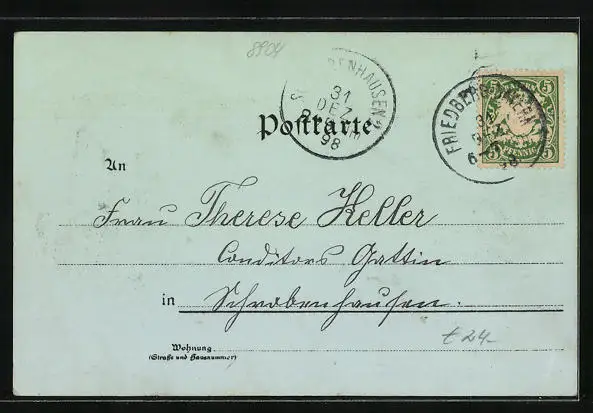 8904
SCHROBENHAUSEN
31
DEZ
98
FRIEDBERG
31
DEZ
6-
98
5 5
PFENNIG
5 5
Postkarte
An
Frau Therese Keller
Conditors Gattin
in Schrobenhausen.
Wohnung
(Straße und Hausnummer)
t 24-